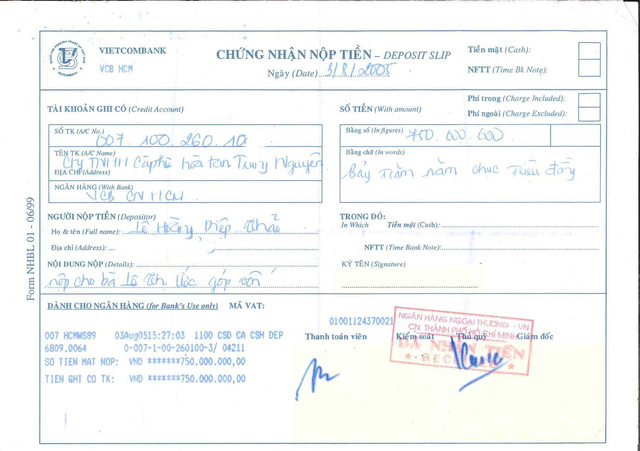 VIETCOMBANK
VCB HCM
CHỨNG NHẬN NỘP TIỀN – DEPOSIT SLIP
Ngày (Date) 3/8/2005
Tiền mặt (Cash):
NFTT (Time Bk Note):
Phí trong (Charge Included):
Phí ngoài (Charge Excluded):
TÀI KHOẢN GHI CÓ (Credit Account)
SỐ TK (A/C No.)
007 100.260.10
TÊN TK (A/C Name)
Cty TNHH Càphê hòa tan Trung Nguyên
ĐỊA CHỈ (Address)
NGÂN HÀNG (With Bank)
VCB CN HCM
SỐ TIỀN (With amount)
Bằng số (In figures) 750.000.000
Bằng chữ (In words)
Bảy trăm năm chục triệu đồng
NGƯỜI NỘP TIỀN (Depositor)
Họ & tên (Full name): Lê Hoàng Diệp Thảo
Địa chỉ (Address):
NỘI DUNG NỘP (Details):
nộp cho bà Lê Thị Ước góp vốn
TRONG ĐÓ:
In Which
Tiền mặt (Cash):
NFTT (Time Bank Note):
KÝ TÊN (Signature)
Form NHBL 01 - 06/99
DÀNH CHO NGÂN HÀNG (for Bank's Use only) MÃ VAT:
01001124370021
007 HCMWS89 03Aug0515:27:03 1100 CSD CA CSH DEP
6809.0064 0-007-1-00-260100-3/ 04211
SO TIEN MAT NOP: VND *******750.000.000,00
TIEN GHI CO TK: VND *******750.000.000,00
Thanh toán viên Kiểm soát Thủ quỹ Giám đốc
NGÂN HÀNG NGOẠI THƯƠNG - VN
CN. THÀNH PHỐ HỒ CHÍ MINH
ĐÃ NHẬN TIỀN